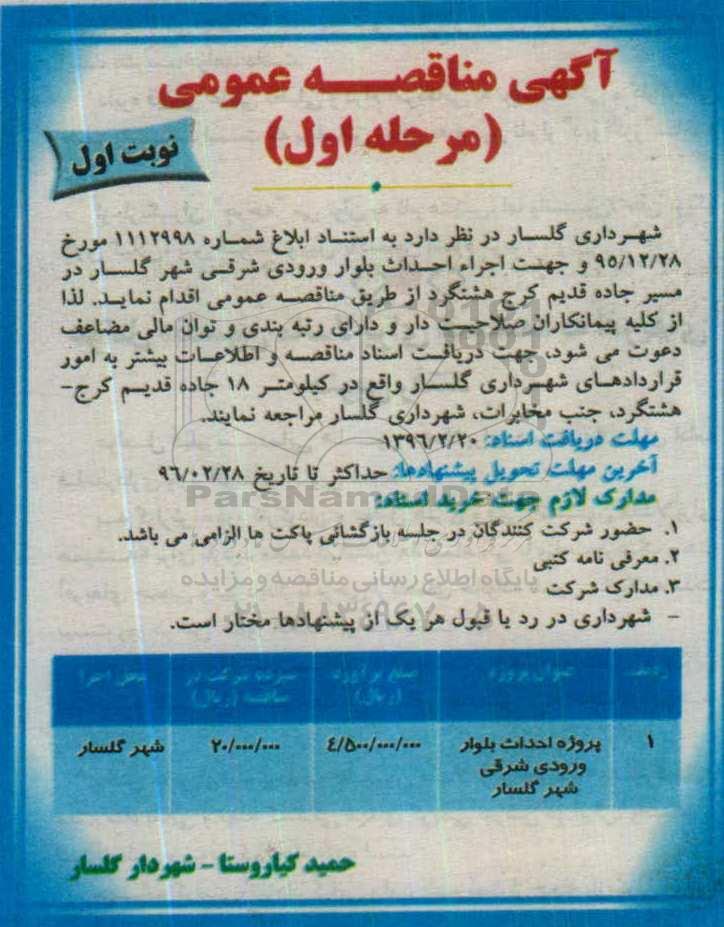 آگهی مناقصه عمومی
(مرحله اول)
نوبت اول
شهرداری گلسار در نظر دارد به استناد ابلاغ شماره ۱۱۱۲۹۹۸ مورخ
۹۵/۱۲/۲۸ و جهت اجراء احداث بلوار ورودی شرقی شهر گلسار در
مسیر جاده قدیم کرج هشتگرد از طریق مناقصه عمومی اقدام نماید. لذا
از کلیه پیمانکاران صلاحیت دار و دارای رتبه بندی و توان مالی مضاعف
دعوت می شود، جهت دریافت اسناد مناقصه و اطلاعات بیشتر به امور
قراردادهای شهرداری گلسار واقع در کیلومتر ۱۸ جاده قدیم کرج-
هشتگرد، جنب مخابرات، شهرداری گلسار مراجعه نمایند.
مهلت دریافت اسناد: ۱۳۹۶/۲/۲۰
آخرین مهلت تحویل پیشنهادها: حداکثر تا تاریخ ۹۶/۰۲/۲۸
ParsNamadData
مدارک لازم جهت خرید اسناد:
۱. حضور شرکت کنندگان در جلسه بازگشائی پاکت ها الزامی می باشد.
۲. معرفی نامه کتبی
پایگاه اطلاع رسانی مناقصه و مزایده
۳. مدارک شرکت
- شهرداری در رد یا قبول هر یک از پیشنهادها مختار است.
ردیف عنوان پروژه مبلغ برآورد (ریال) سپرده شرکت در مناقصه (ریال) محل اجرا
۱ پروژه احداث بلوار ورودی شرقی شهر گلسار ۴/۵۰۰/۰۰۰/۰۰۰ ۲۰/۰۰۰/۰۰۰ شهر گلسار
حمید کیاروستا - شهردار گلسار